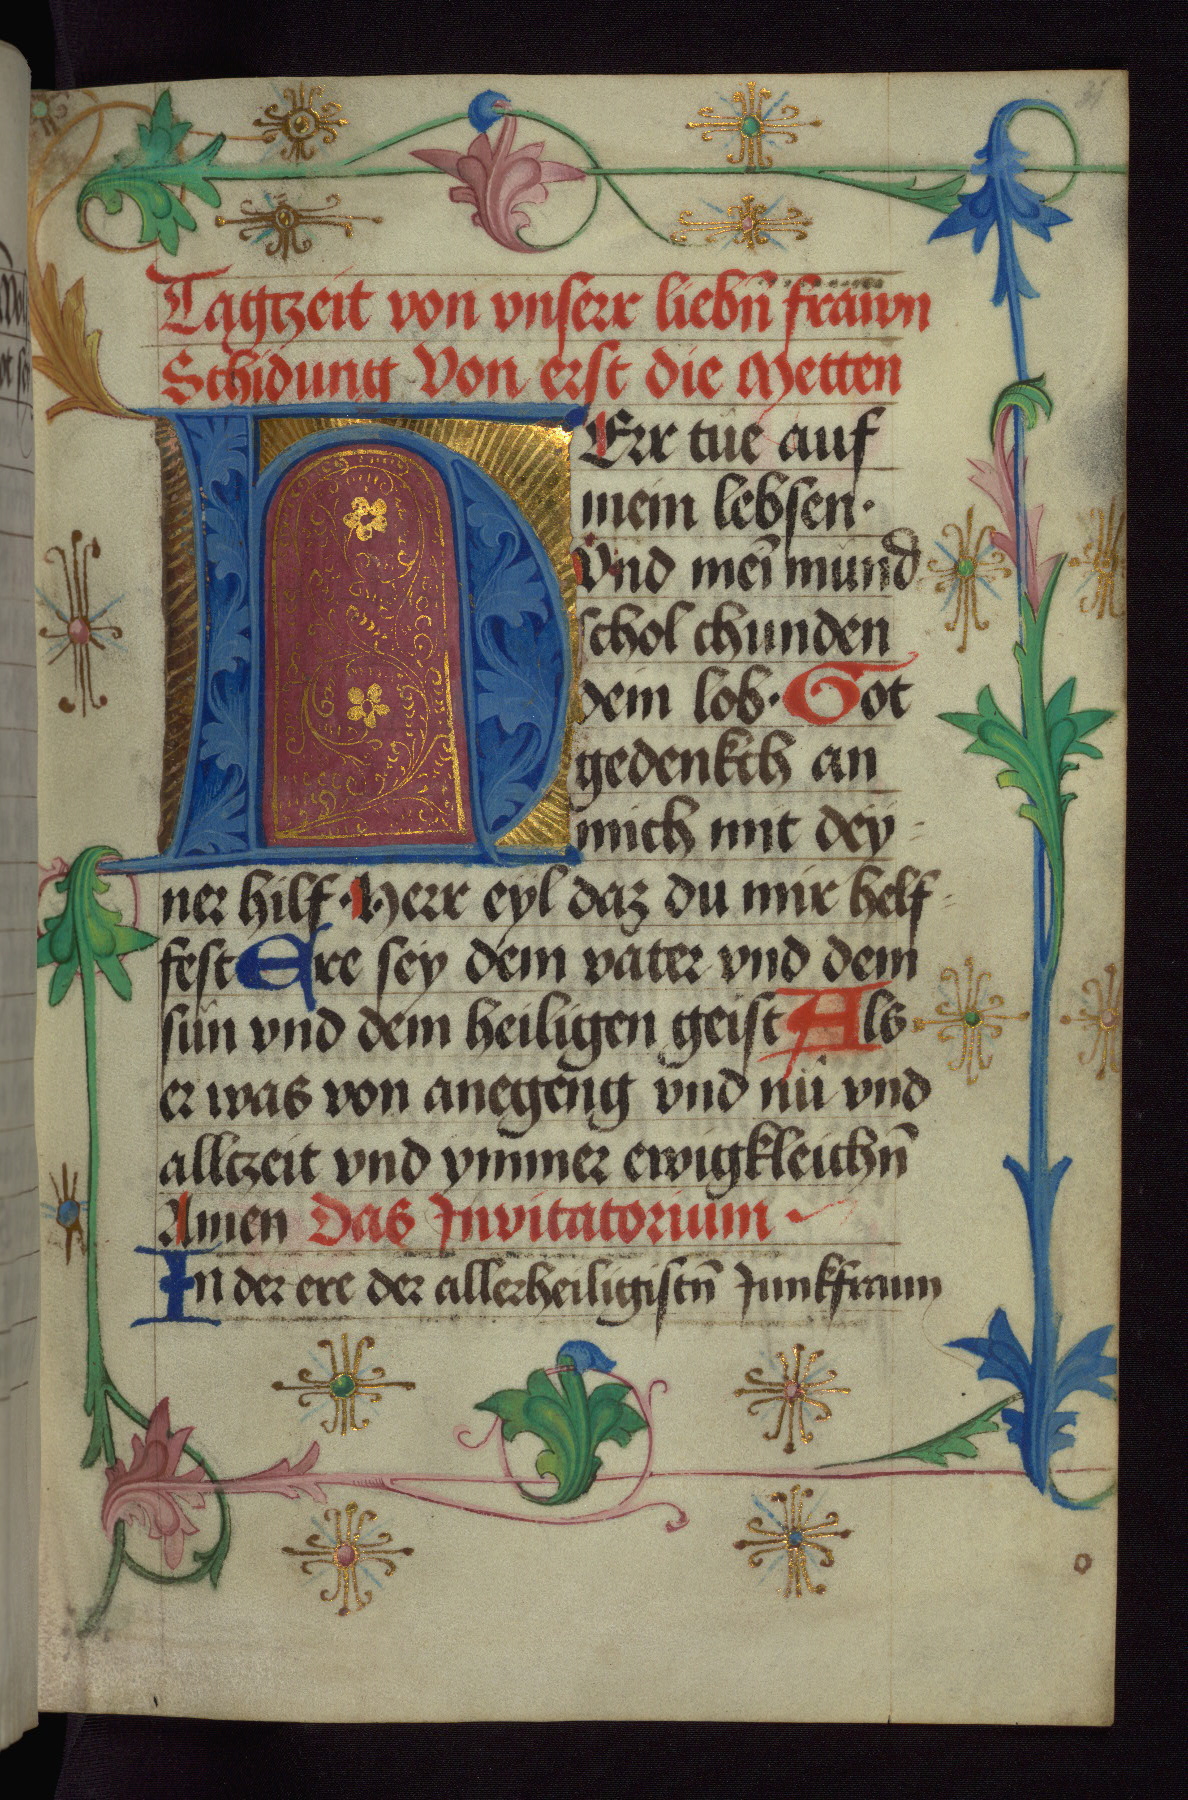 Tagtzeit von vnserr liebn̄ frawn
Schidung Von erst die Metten
HErr tüe auf
mein lebsen·
Vnd mein̄ mund
schol chunden
dein lob· Got
gedenkch an
mich mit dey=
ner hilf· Herr eyl daz du mir helf=
fest Ere sey dem vater vnd dem
sün vnd dem heiligen geist Als
er was von anegeng vnd nü vnd
alltzeit vnd ymmer ewigkleichn̄
Amen Das Invitatorium
In der ere der allerheiligistn̄ Junkfraun